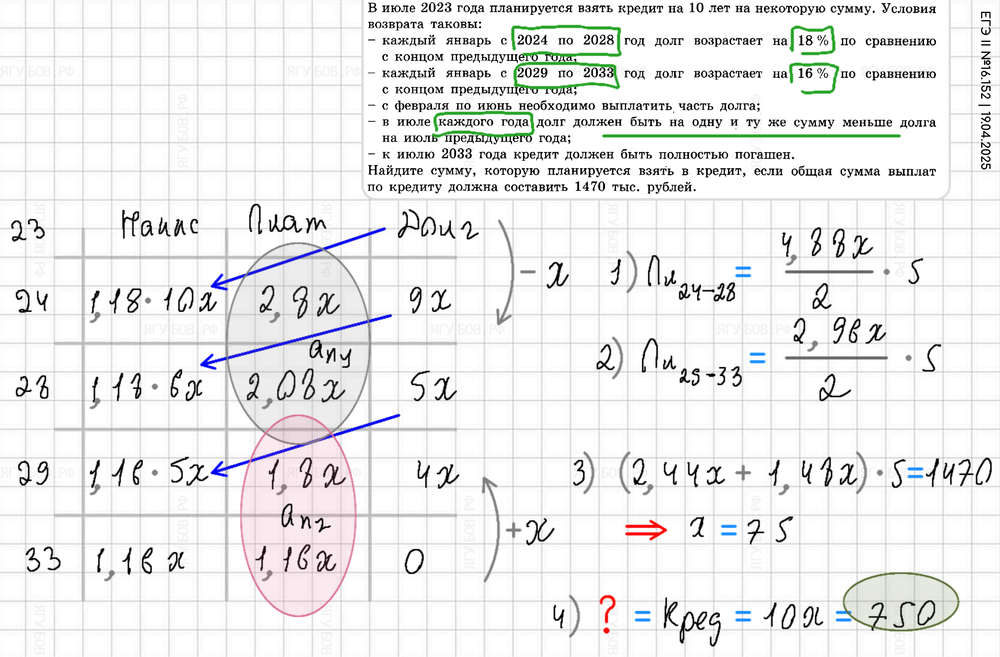 В июле 2023 года планируется взять кредит на 10 лет на некоторую сумму. Условия
возврата таковы:
– каждый январь с 2024 по 2028 год долг возрастает на 18 % по сравнению
с концом предыдущего года;
– каждый январь с 2029 по 2033 год долг возрастает на 16 % по сравнению
с концом предыдущего года;
– с февраля по июнь необходимо выплатить часть долга;
– в июле каждого года долг должен быть на одну и ту же сумму меньше долга
на июль предыдущего года;
– к июлю 2033 года кредит должен быть полностью погашен.
Найдите сумму, которую планируется взять в кредит, если общая сумма выплат
по кредиту должна составить 1470 тыс. рублей.
ЕГЭ II №16.152 | 19.04.2025
23 Начис Плат Долг
24 1,18·10x 2,8x 9x
– x
ап1
28 1,18·6x 2,08x 5x
29 1,16·5x 1,8x 4x
ап2
+x
33 1,16x 1,16x 0
1) Пл24-28 = 4,88x / 2 · 5
2) Пл29-33 = 2,96x / 2 · 5
3) (2,44x + 1,48x)·5=1470
⇒ x = 75
4) ? = Кред = 10x = 750
ЯГУБОВ.РФ